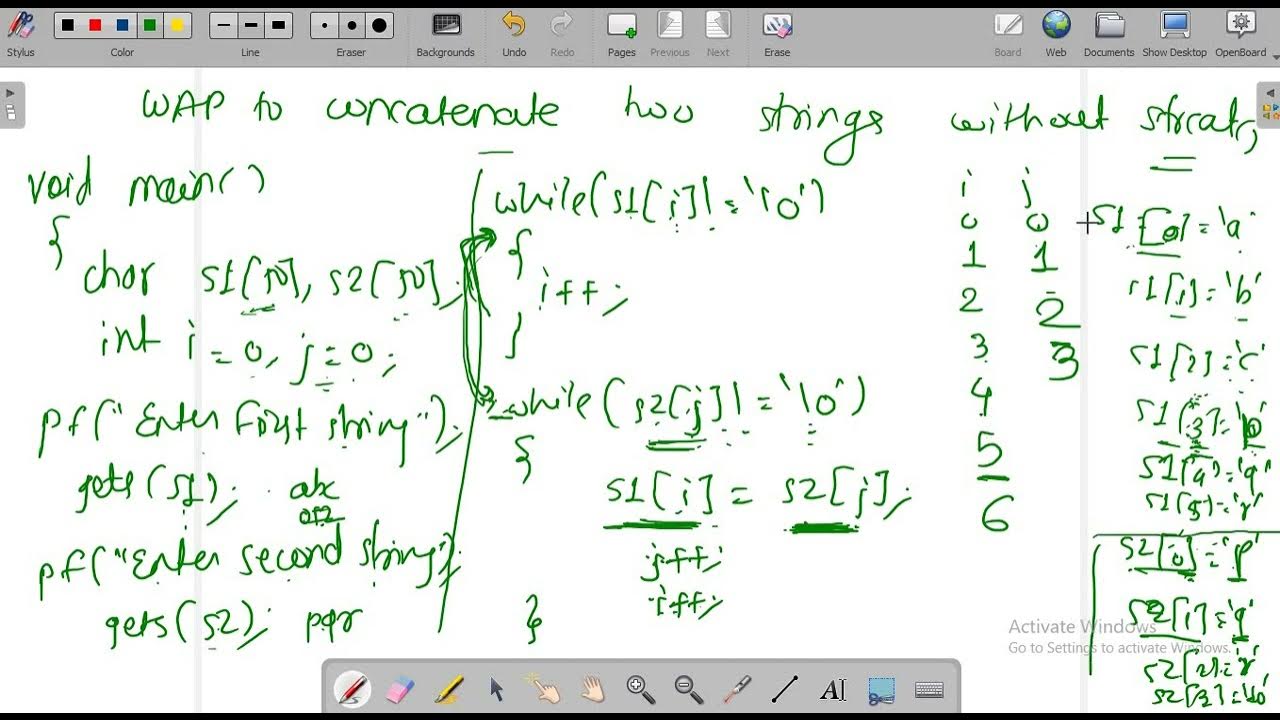 Stylus Color Line Eraser Backgrounds Undo Redo Pages Previous Next Erase Board Web Documents Show Desktop OpenBoard
WAP to concatenate two strings without strcat,
void main()
{
char s1[50], s2[50];
int i = 0, j = 0;
pf("Enter First string");
gets(s1); abc
012
pf("Enter second string");
gets(s2); pqr
while(s1[i]!='\0')
{
i++;
}
while(s2[j]!='\0')
{
s1[i] = s2[j];
j++;
i++;
}
i j
0 0
1 1
2 2
3 3
4
5
6
s1[0]='a'
s1[1]='b'
s1[2]='c'
s1[3]='p
s1[4]='q'
s1[5]='r'
s2[0]='p'
s2[1]='q'
s2[2]='r'
s2[3]='\0'
Activate Windows
Go to Settings to activate Windows.